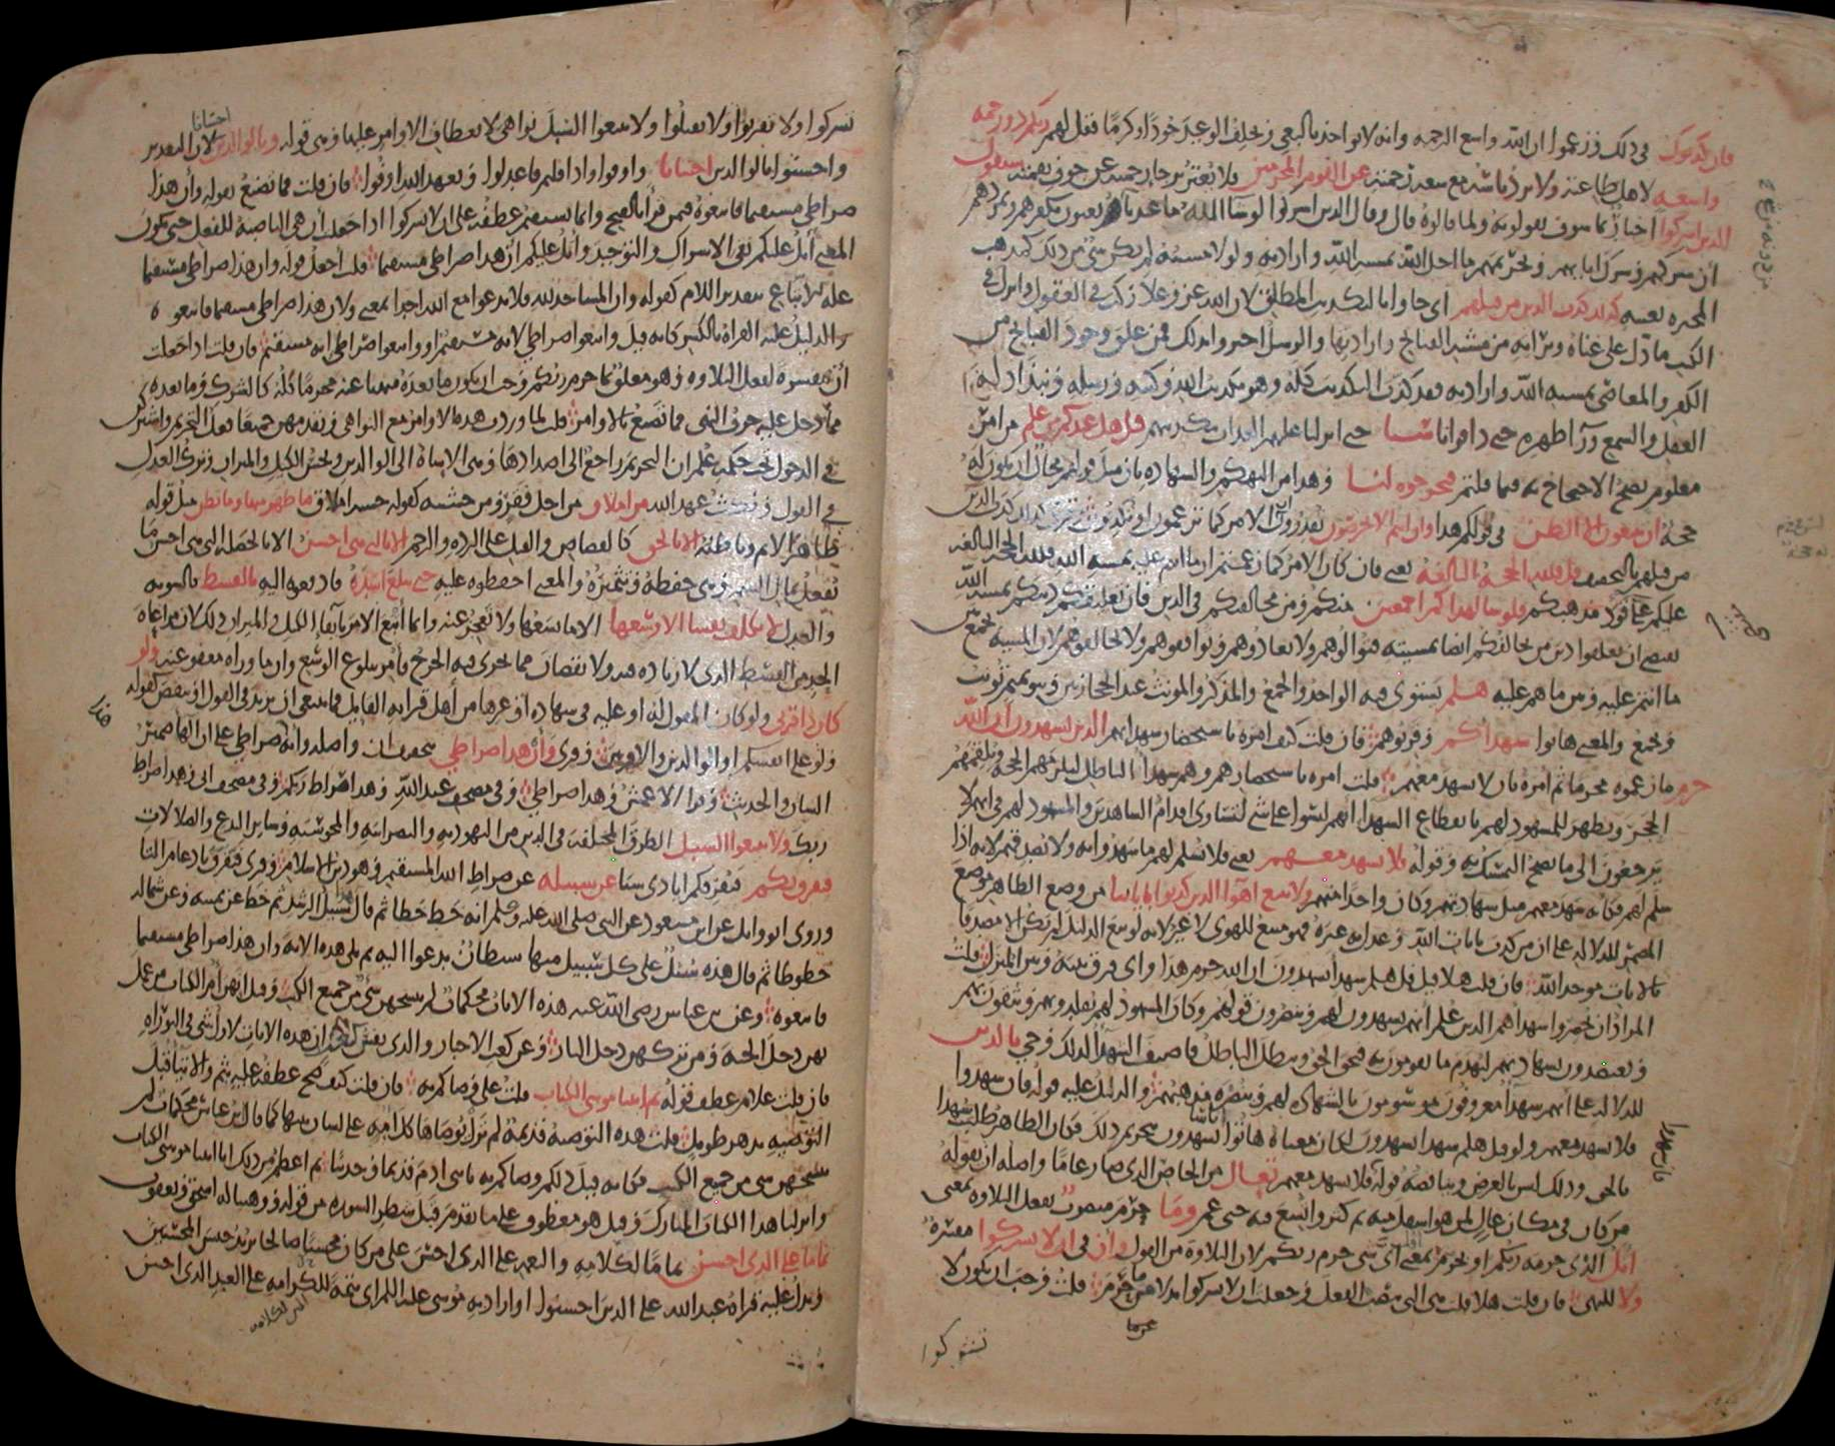 فإن كذبوك في ذلك وزعموا ان الله واسع الرحمة وانه لا يؤاخذ بالبغي ويخلف الوعيد جودا وكرما فقل لهم ربكم ذو رحمة
واسعة لاهل طاعته ولا يرد باسه مع سعة رحمته عن القوم المجرمين فلا تغتر برجاء رحمته عن خوف نقمته سيقول
الذين اشركوا اخبار بما سوف يقولونه ولما قالوه قال وقال الذين اشركوا لو شا الله ما عبدنا يعنون بكفرهم وتمردهم
ان شركهم وشرك ابايهم وتحريمهم ما احل الله بمشية الله وارادته ولولا مشيته لم يكن شي من ذلك كمذهب
المجبرة بعينه كذلك كذب الذين من قبلهم اي جاوا بالتكذيب المطلق لان الله عز وعلا ركب في العقول وانزل في
الكتب ما دل على غناه وبراته من مشية القبايح وارادتها والرسل اخبروا بذلك فمن علق وجود القبايح من
الكفر والمعاصي بمشية الله وارادته فقد كذب التكذيب كله وهو تكذيب الله وكتبه ورسله ونبذ ادلة
العقل والسمع ورا ظهره حتى ذاقوا باسنا حتى انزلنا عليهم العذاب بتكذيبهم قل هل عندكم من علم من امر
معلوم يصح الاحتجاج به فيما قلتم فتخرجوه لنا وهذا من التهكم والشهادة بان مثل قولهم محال ان يكون له
حجة ان تتبعون الا الظن في قولكم هذا وان انتم الا تخرصون تقدرون ان الامر كما تزعمون او تكذبون وقرئ كذلك كذب الذين
من قبلهم بالتخفيف قل فلله الحجة البالغة يعني فان كان الامر كما زعمتم ان ما انتم عليه بمشية الله فلله الحجة البالغة
عليكم على قود مذهبكم فلو شا لهداكم اجمعين منكم ومن مخالفيكم في الدين فان تعليقكم دينكم بمشية الله
يقتضي ان تعلقوا دين من يخالفكم ايضا بمشيته فتوالوهم ولا تعادوهم وتوافقوهم ولا تخالفوهم لان المشية تجمع بين
ما انتم عليه وبين ما هم عليه هلم يستوي فيه الواحد والجمع والمذكر والمونث عند الحجازيين وبنو تميم تونث
وتجمع والمعنى هاتوا شهداكم وقربوهم فان قلت كيف امره باستحضار شهدايهم الذين يشهدون ان الله
حرم ما زعموه محرما ثم امره بان لا يشهد معهم قلت امره باستحضارهم وهم شهدا بالباطل ليلزمهم الحجة ويلقمهم
الحجر ويظهر للمشهود لهم بانقطاع الشهدا انهم ليسوا على شي لتساوي اقدام الشاهدين والمشهود لهم في انهم لا
يرجعون الى ما يصح التمسك به وقوله فلا تشهد معهم يعني فلا تسلم لهم ما شهدوا به ولا تصدقهم لانه اذا
سلم لهم فكانه شهد معهم مثل شهادتهم وكان واحدا منهم ولا تتبع اهوا الذين كذبوا باياتنا من وضع الظاهر موضع
المضمر للدلالة على ان من كذب بايات الله وعدل به غيره فهو متبع للهوى لا غير لانه لو تبع الدليل لم يكن الا مصدقا
بالايات موحدا لله فان قلت هلا قيل قل هلم شهدا يشهدون ان الله حرم هذا واي فرق بينه وبين المنزل قلت
المراد ان يحضروا شهداهم الذين علم انهم يشهدون لهم وينصرون قولهم وكان المشهود لهم يقلدونهم ويثقون بهم
ويعتضدون بشهادتهم ليهدم ما يقومون به فيحق الحق ويبطل الباطل فاضيفت الشهدا لذلك وجي بالذين
للدلالة على انهم شهدا معروفون موسومون بالشهادة لهم وبنصرة مذهبهم والدليل عليه قوله فان شهدوا
فلا تشهد معهم ولو قيل هلم شهدا يشهدون لكان معناه هاتوا اناسا يشهدون بتحريم ذلك فكان الظاهر طلب شهدا
بالحق وذلك ليس بالغرض ويناقضه قوله فلا تشهد معهم تعال من الخاص الذي صار عاما واصله ان يقوله
من كان في مكان عال لمن هو اسفل منه ثم كثر واتسع فيه حتى عم وما حرم منصوب بفعل التلاوة بمعنى
اتل الذي حرمه ربكم او بحرم بمعنى اي شي حرم ربكم لان التلاوة من القول وان في ان لا تشركوا مفسرة
ولا للنهي فان قلت هلا قلت هي التي تنصب الفعل وجعلت ان لا تشركوا بدلا من ما حرم قلت وجب ان يكون لا
تشركوا
تشركوا ولا تقربوا ولا تقتلوا ولا تتبعوا السبل نواهي لانعطاف الاوامر عليها وهي قوله وبالوالدين احسانا لان التقدير
واحسنوا بالوالدين احسانا واوفوا واذا قلتم فاعدلوا وبعهد الله اوفوا فان قلت فما تصنع بقوله وأن هذا
صراطي مستقيما فاتبعوه فيمن قرأ بالفتح وانما يستقيم عطفه على ان لا تشركوا اذا جعلت ان هي الناصبة للفعل حتى يكون
المعنى أتل عليكم نفي الاشراك والتوحيد وأتل عليكم أن هذا صراطي مستقيما قلت اجعل قوله وان هذا صراطي مستقيما
علة للاتباع بتقدير اللام كقوله وان المساجد لله فلا تدعوا مع الله احدا بمعنى ولان هذا صراطي مستقيما فاتبعوه
والدليل عليه القراة بالكسر كانه قيل واتبعوا صراطي لانه مستقيم او واتبعوا صراطي انه مستقيم فان قلت اذا جعلت
أن مفسرة لفعل التلاوة وهو معلق بما حرم ربكم وجب ان يكون ما بعده منهيا عنه محرما كله كالشرك وما بعده
مما دخل عليه حرف النهي فما تصنع بالاوامر قلت لما وردت هذه الاوامر مع النواهي وتقدمهن جميعا فعل التحريم واشتركن
في الدخول تحت حكمه علم ان التحريم راجع الى اضدادها وهي الاساة الى الوالدين وبخس الكيل والميزان وترك العدل
في القول ونكث عهد الله من املاق من اجل فقر ومن خشيته كقوله خشية املاق ما ظهر منها وما بطن مثل قوله
ظاهر الاثم وباطنه الا بالحق كالقصاص والقتل على الردة والرجم الا بالتي هي احسن الا بالخصلة التي هي احسن ما
يفعل بمال اليتيم وهي حفظه وتثميره والمعنى احفظوه عليه حتى يبلغ اشده فادفعوه اليه بالقسط بالسوية
والعدل لا نكلف نفسا الا وسعها الا ما يسعها ولا تعجز عنه وانما اتبع الامر بايفا الكيل والميزان ذلك لان مراعاة
الحد من القسط الذي لا زيادة فيه ولا نقصان مما يجري فيه الحرج فامر ببلوغ الوسع وان ما وراه معفو عنه ولو
كان ذا قربى ولو كان المقول له او عليه في شهادة او غيرها من أهل قرابة القايل فما ينبغي ان يزيد في القول او ينقص كقوله
ولو على انفسكم او الوالدين والاقربين وقرئ وأن هذا صراطي بتخفيف ان واصله وانه صراطي على ان الها ضمير
الشان والحديث وقرا الاعمش وهذا صراطي وفي مصحف عبد الله وهذا صراط ربكم وفي مصحف ابي وهذا صراط
ربك ولا تتبعوا السبل الطرق المختلفة في الدين من اليهودية والنصرانية والمجوسية وساير البدع والضلالات
فتفرق بكم فتفرقكم ايادي سبا عن سبيله عن صراط الله المستقيم وهو دين الاسلام وقرئ فتفرق بادغام التا
وروى ابو وايل عن ابن مسعود عن النبي صلى الله عليه وسلم انه خط خطا ثم قال هذا سبيل الرشد ثم خط عن يمينه وعن شماله
خطوطا ثم قال هذه سبل على كل سبيل منها شيطان يدعوا اليه ثم تلى هذه الاية وان هذا صراطي مستقيما
فاتبعوه وعن بن عباس رضي الله عنه هذه الايات محكمات لم ينسخهن شي من جميع الكتب وقيل انهن ام الكتاب من عمل
بهن دخل الجنة ومن تركهن دخل النار وعن كعب الاحبار والذي نفس كعب بيده ان هذه الايات لاول شي في التوراة
فان قلت علام عطف قوله ثم اتينا موسى الكتاب قلت على وصاكم به فان قلت كيف صح عطفه عليه بثم والايتا قبل
التوصية بدهر طويل قلت هذه التوصية قديمة لم تزل توصاها كل امة على لسان نبيها كما قال ابن عباس محكمات لم
ينسخهن شي من جميع الكتب فكانه قيل ذلكم وصاكم به يا بني ادم قديما وحديثا ثم اعظم من ذلك انا اتينا موسى الكتاب
وانزلنا هذا الكتاب المبارك وقيل هو معطوف على ما تقدم قبل شطر السورة من قوله ووهبنا له اسحق ويعقوب
تماما على الذي احسن تماما للكرامة والنعمة على الذي احسن على من كان محسنا صالحا يريد جنس المحسنين
ويدل عليه قراة عبد الله على الذين احسنوا او اراد به موسى عليه السلم اي تتمة للكرامة على العبد الذي احسن